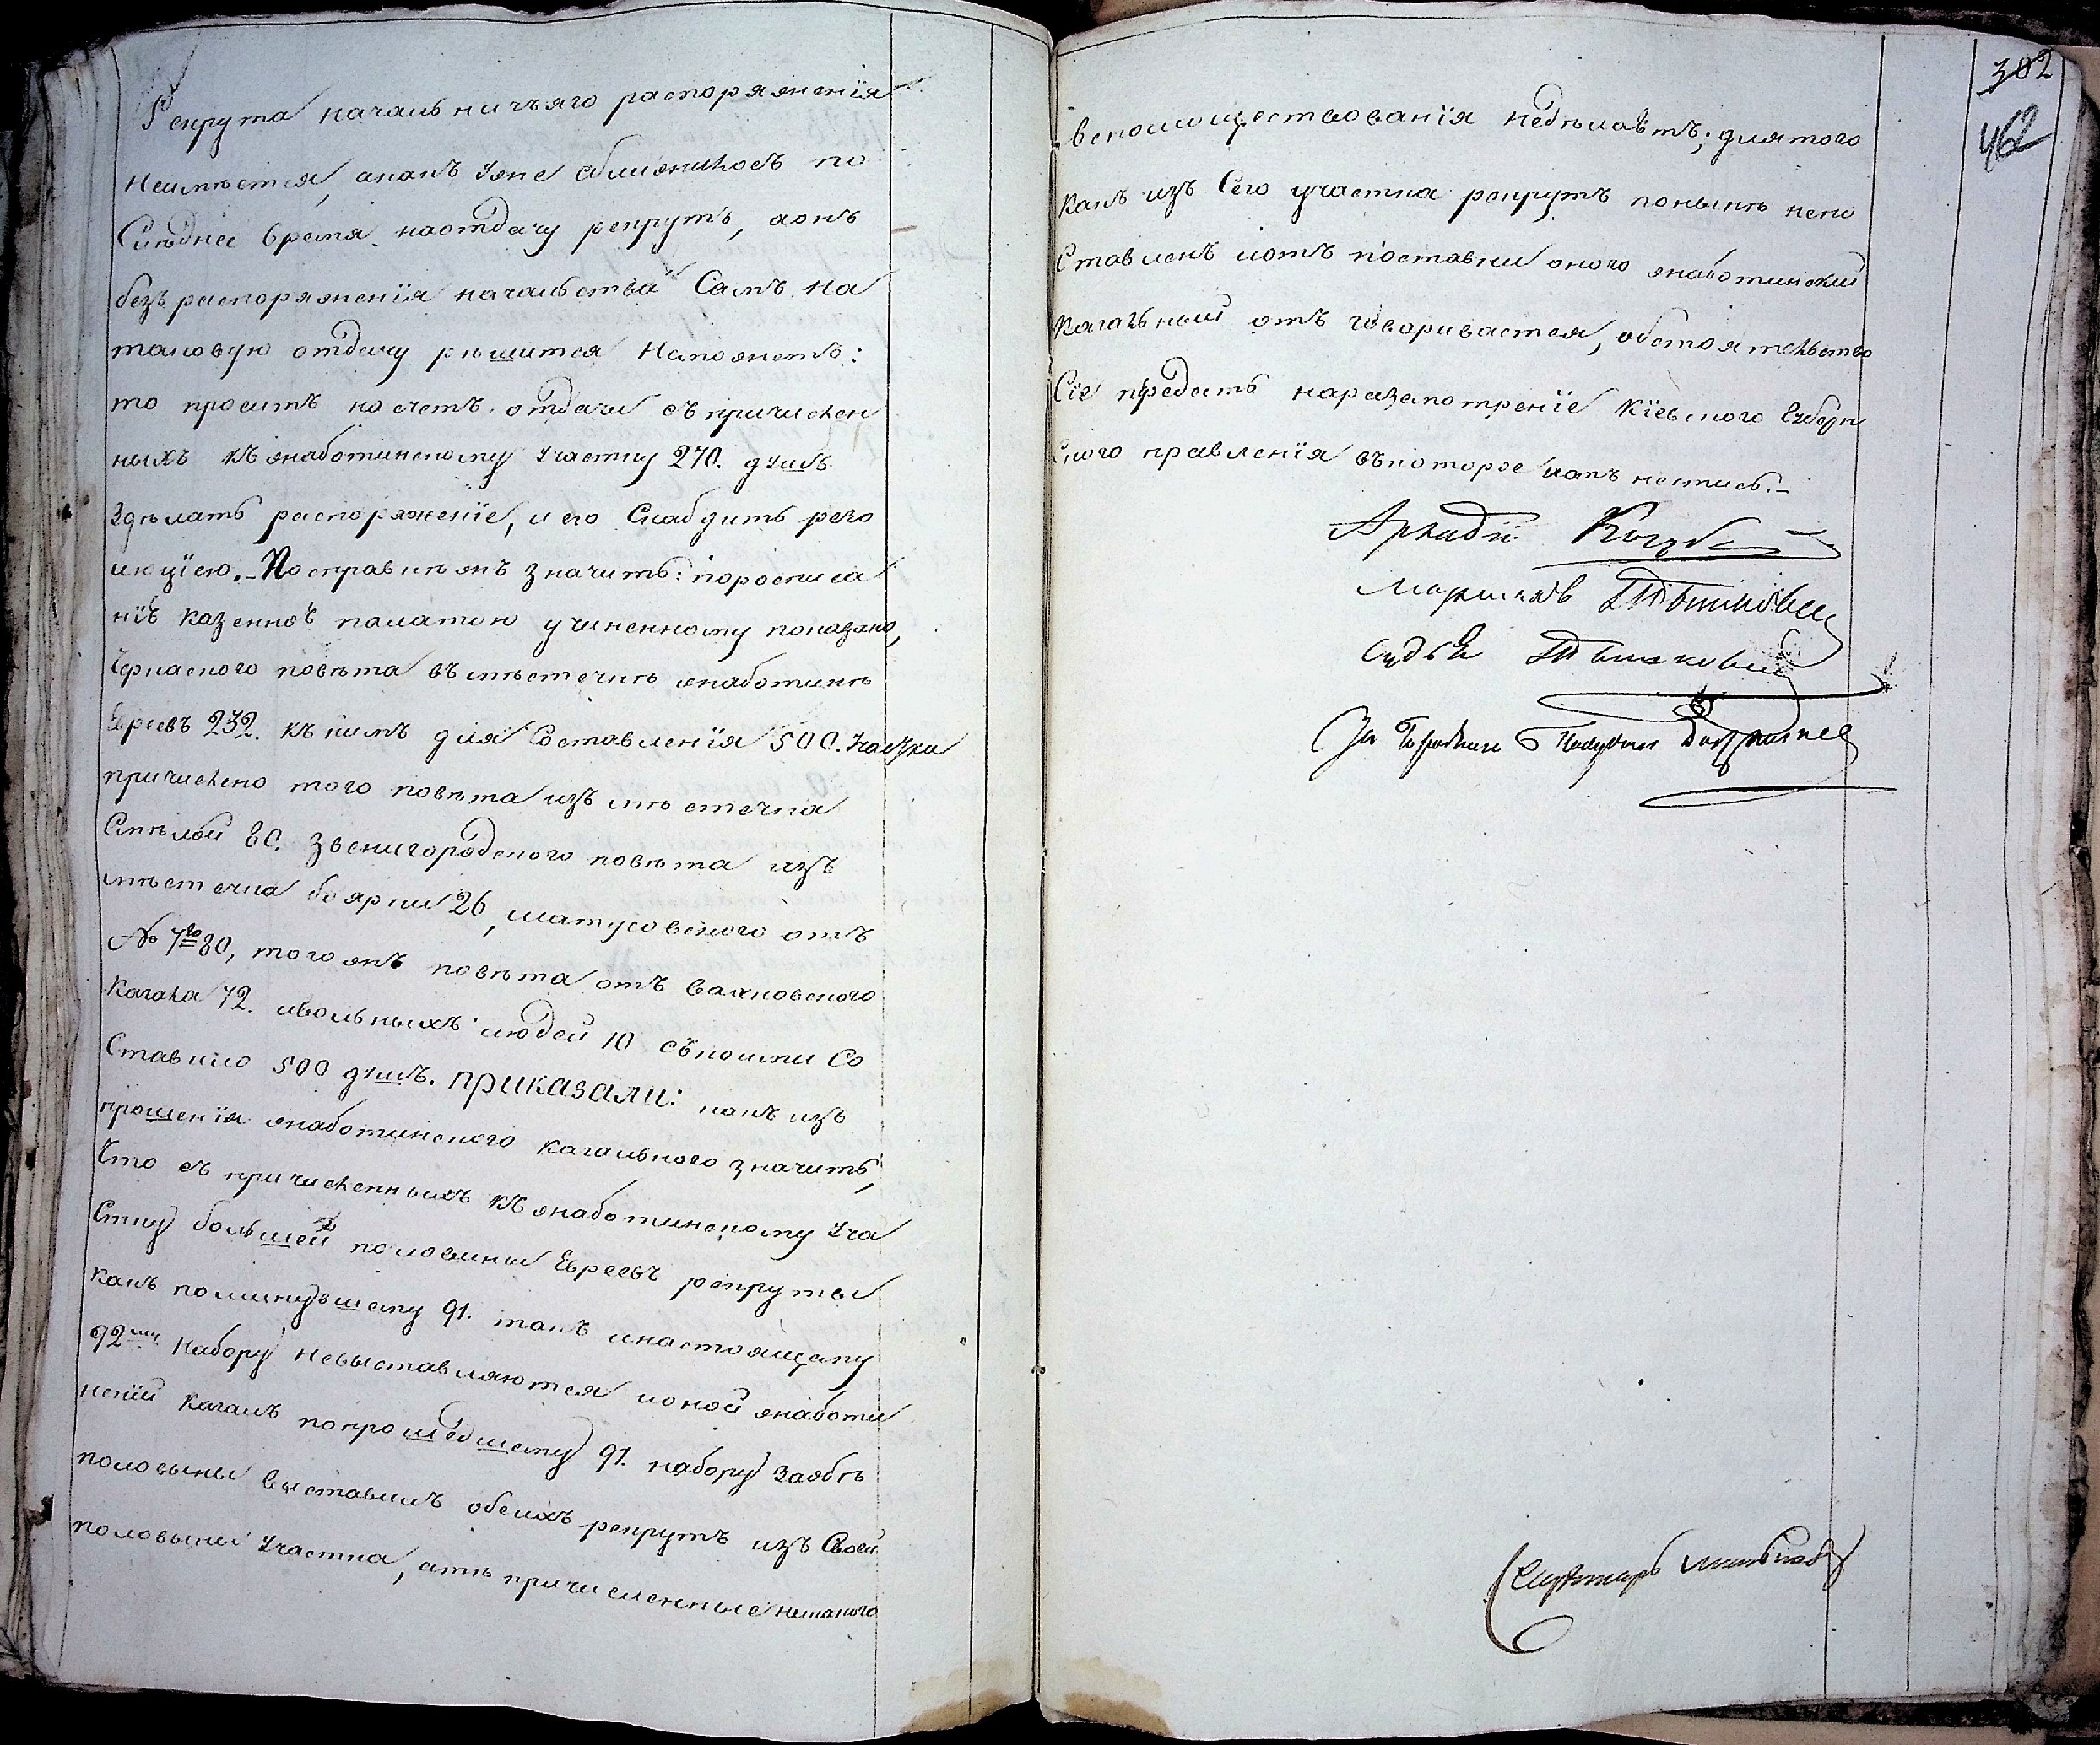 Рекрута начальничьяго распоряженія
Неимѣется, акакъ уже сближилось по
Слѣднее время наотдачу рекрутъ, аонъ
безъ распоряженія начальства Самъ на
таковую отдачу рѣшится Неможетъ:
то проситъ насчетъ отдачи съ причислен
ныхъ къ жаботинскому участку 270. душъ
Здѣлать распоряженіе, и его Снабдить резо
люціею.- По справкѣ жъ значитъ: поросписа
ніѣ казенноѣ палатою учиненному показано,
Черкаского повѣта въ мѣстечкѣ жаботинѣ
Евреевъ 232. къ нимъ для Составленія 500. участка
причислено того повѣта изъ мѣстечка
Смѣлой 80. Звенигородского повѣта изъ
мѣстечка боярки 26, матусовского отъ
№ 7го 80, того жъ повѣта отъ
Кагала 72. ивольныхъ людей 10 съкоими Со
Ставило 500 душъ. приказали: какъ изъ
прошенія жаботинского кагального значитъ,
Что съ причисленныхъ къ жаботинскому Уча
Стку большей половины Евреевъ рекруты
какъ поминувшему 91. такъ инастоящему
92му набору невыставляются ионой жаботи
нский Кагалъ попрошедшему 91. набору Заобѣ
половыны выставилъ обеихъ рекрутъ изъ Своей
половыны участка, атѣ причисленные никакого
вспомоществованія недѣлаютъ; длятого
какъ изъ Сего участка рекрутъ понынѣ непо
Ставленъ иотъ поставки оного жаботинский
Кагальный отъ говоривается, обстоятельство
Сіе предать наразсмотреніе Кіевского Губерн
Ского правленія въкоторое
Аркадій
Маршалъ
Судья
За Городничего
Секретарь
302
462